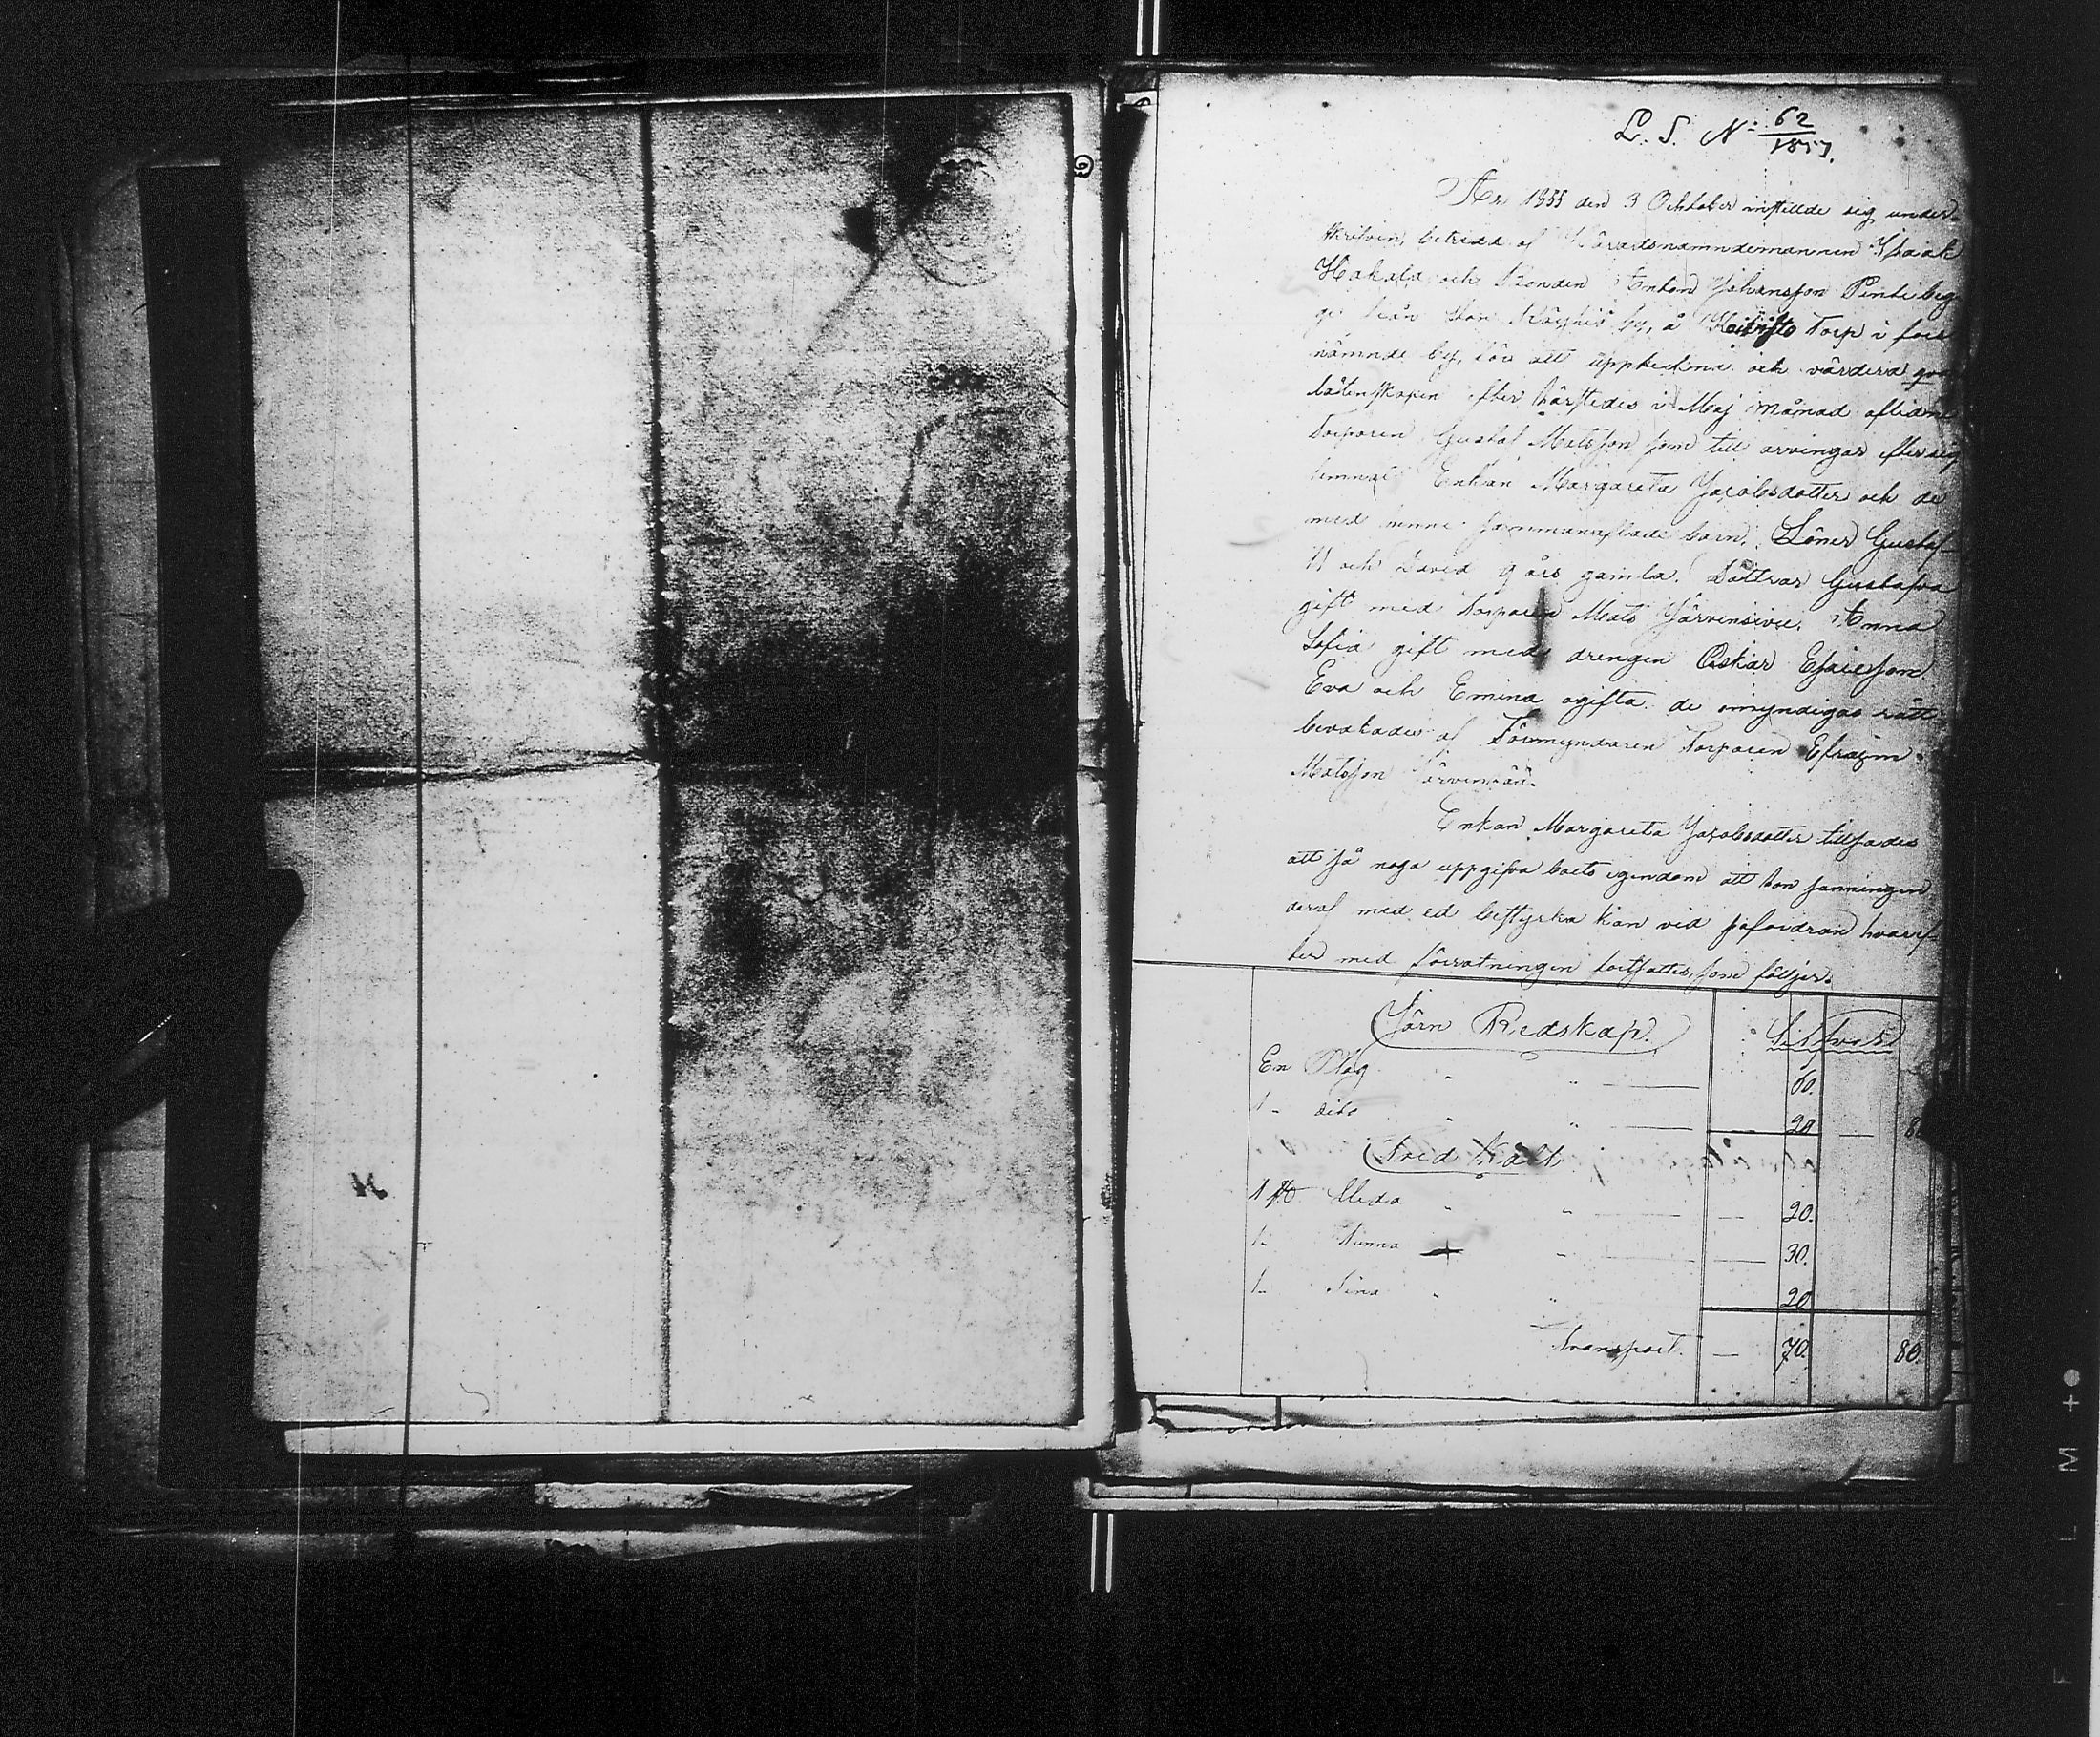 L. S. No: 62/1857.
År 1855 den 3 Oktober instellde sig under-
skrifvin, biträdd af Häradsnämndemannen Isaak
Hakala och Bonden Anton Johansson Pentti beg-
ge från Köyhiö by, å Torp i före
nämnde by, för att uppteckna och värdera qvar-
låtenskapen efter härstedes i Maj Månad aflidne
Torparen Gustaf Matsson som till arvingar efter sig
lemnat Enkan Margareta Jacobsdotter och de
med henne sammanaflade barn, Söner Gustaf
11 och David 9 års gamla. Döttrar Gustafva
gift med Torparen Mats Järvensivu. Anna
Sofia gift med drengen Oskar Esaiesson
Eva och Emina ogifta. de omyndigas rätt
bevakades af Förmyndaren Torparen Efraim
Matsson Järvenpää.
Enkan Margareta Jacobsdotter tillsades
att så noga uppgifva boets egendom att hon sanningen
deraf med ed bestyrka kan vid påfordran hvaref-
ter med förrätningen fortsattes, som följer.
Järn Redskap. Silfver
En Plog " " — 60.
1 - dito " " — 20 — 80
Träd Kält
1 st. Släda " " — — 20.
1 - — — 30.
1 - " " 20
Transport. — 70. 80.